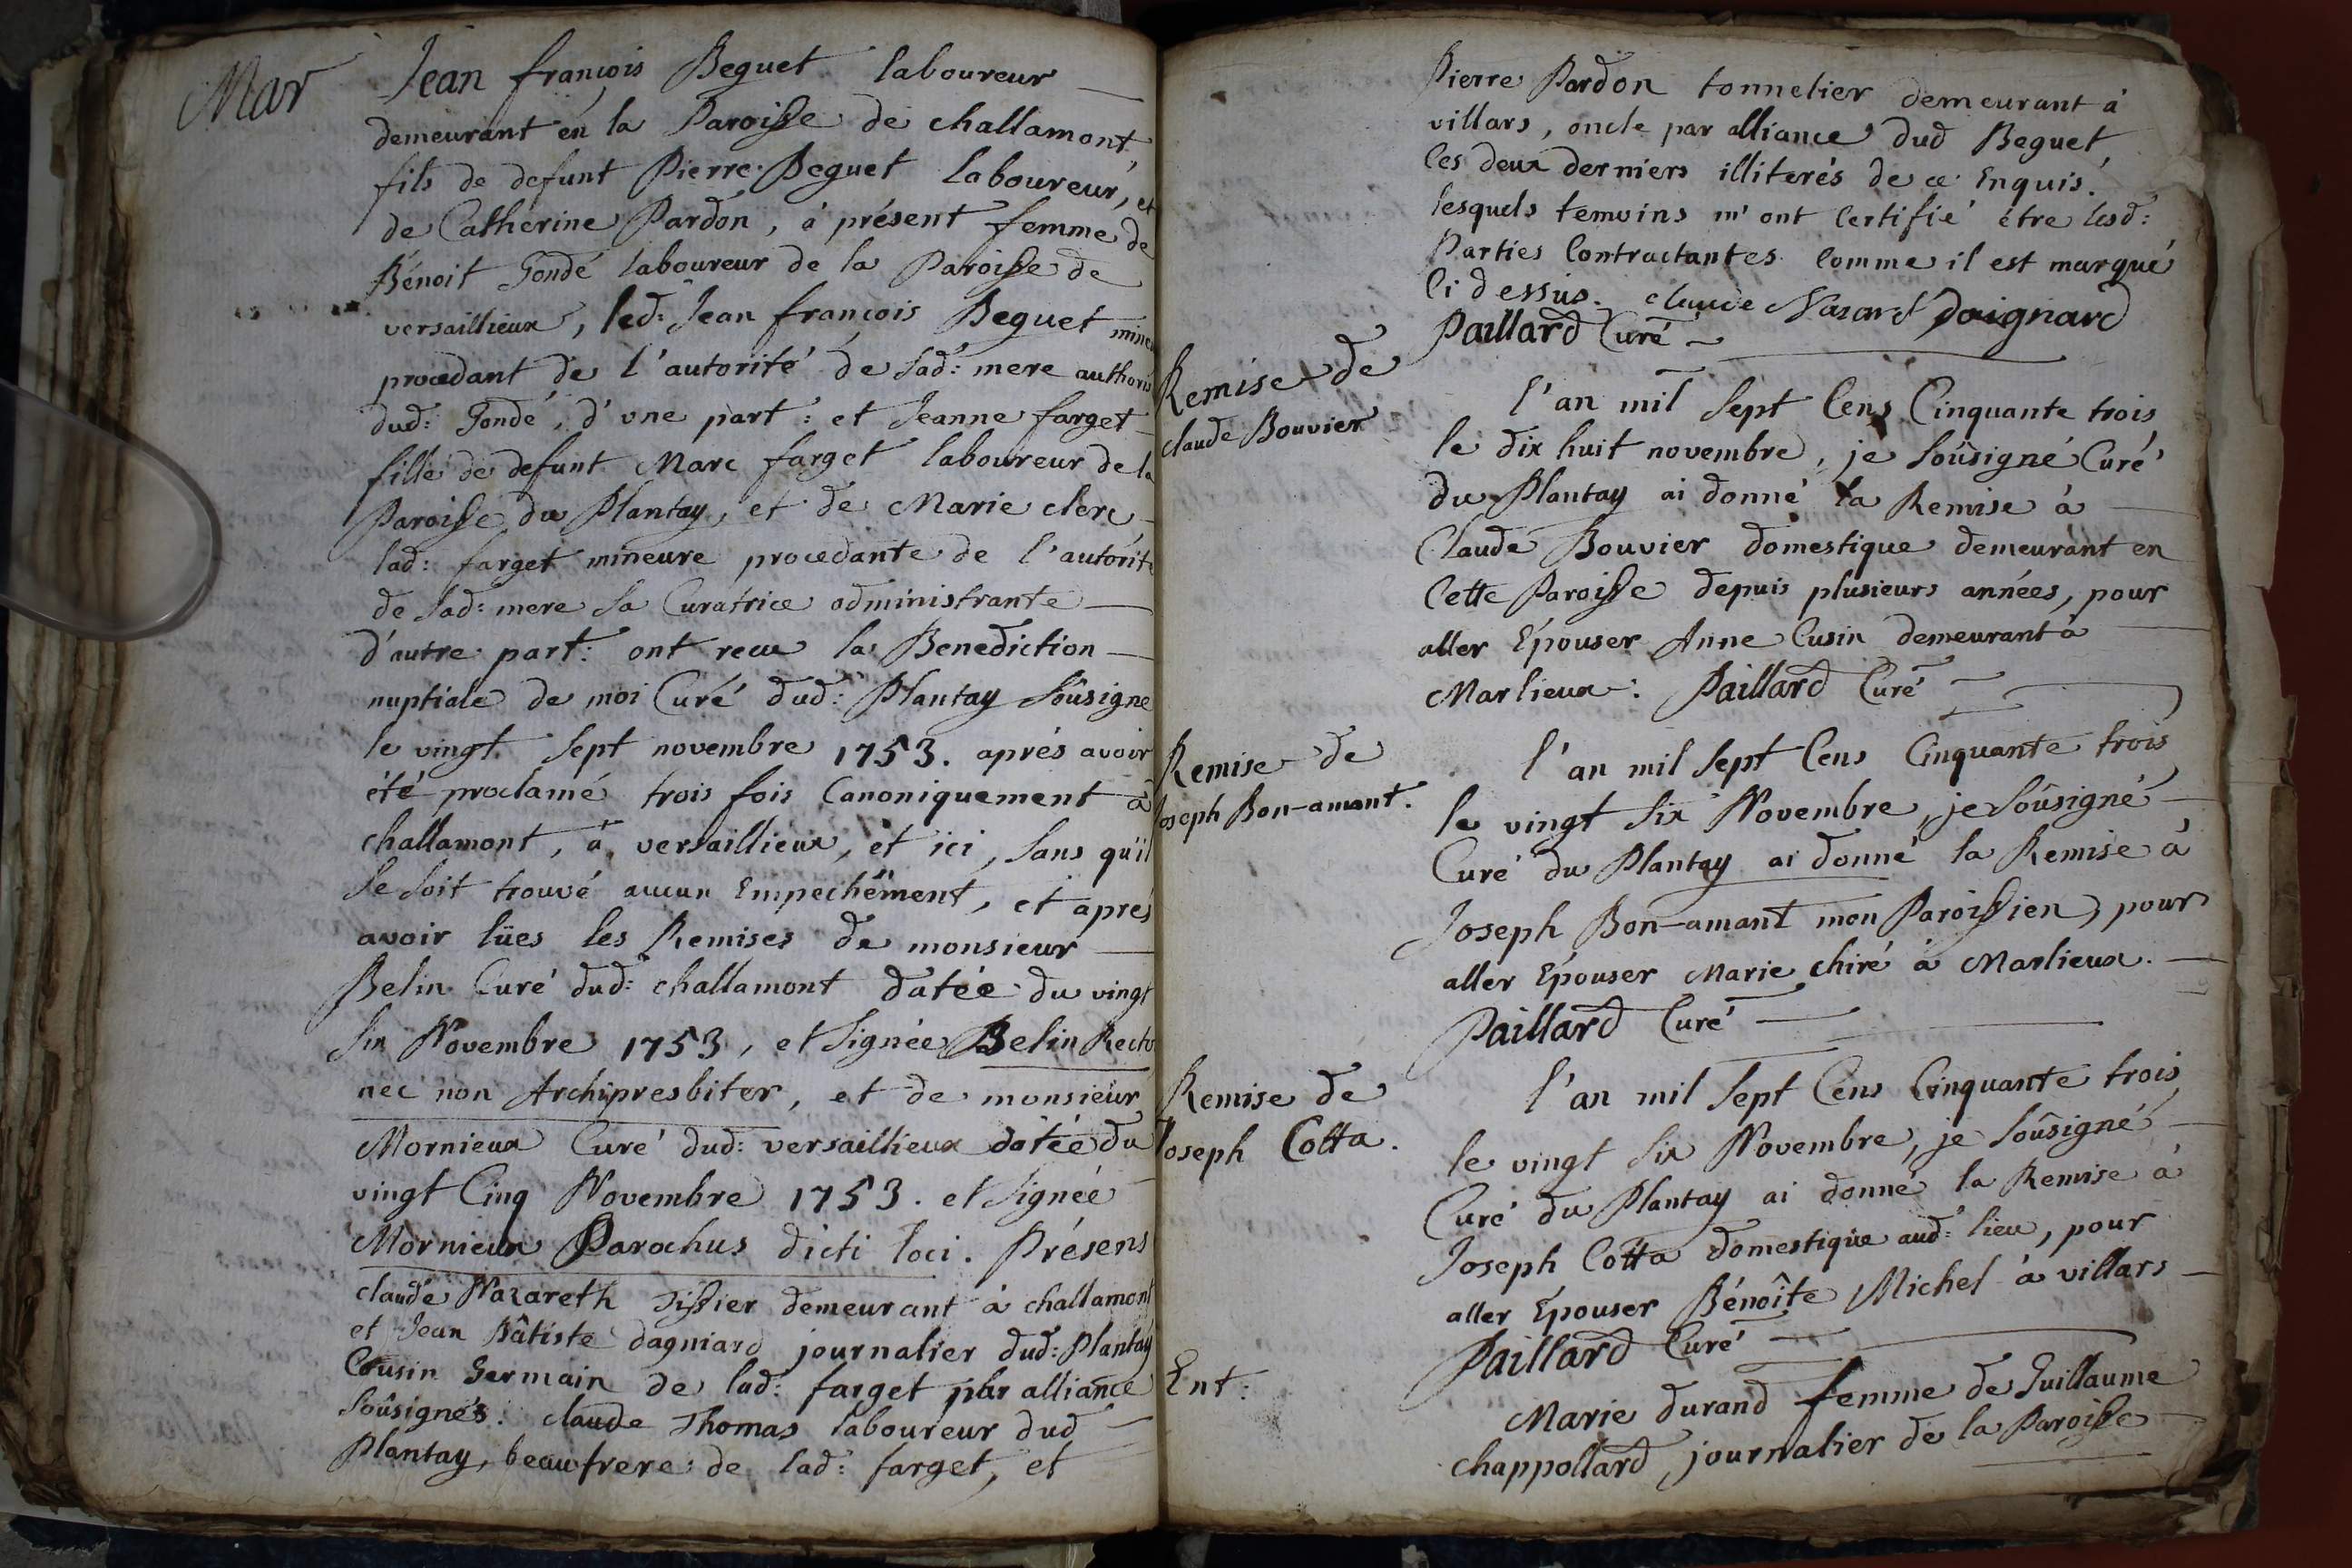 Mar
Jean françois Beguet laboureur
demeurant en la Paroisse de challamont,
fils de defunt Pierre Beguet laboureur, et
de Catherine Pardon, à présent femme de
Bénoit Gondé laboureur de la Paroisse de
versaillieux, led: Jean françois Beguet mineu
procedant de l'autorité de sad: mere authoris
dud: Gondé, d'une part: et Jeanne farget
fille de defunt Marc farget laboureur de la
Paroisse du Plantay, et de Marie clerc
lad: farget mineure procedante de l'autorité
de sad: mere sa Curatrice administrante
d'autre part: ont recu la Benediction
nuptiale de moi Curé dud: Plantay Soûsigné
le vingt sept novembre 1753. aprés avoir
été proclamé trois fois Canoniquement à
challamont, à versaillieux, et ici, sans qu'il
se soit trouvé aucun Empechement, et aprés
avoir lües les Remises de monsieur
Belin Curé dud: challamont datée du vingt
six Novembre 1753, et signée Belin Recto
nec non Archipresbiter, et de monsieur
Mornieux Curé dud: versaillieux datée du
vingt Cinq Novembre 1753. et signée
Mornieux Parochus dicti loci. Présens
claude Nazareth Tissier demeurant à challamont
et Jean Bâtiste dagniard journalier dud: Plantay
Cousin Germain de lad: farget par alliance
soûsignés. claude Thomas laboureur dud
Plantay, beaufrere de lad: farget, et
Pierre Pardon tonnelier demeurant à
villars, oncle par alliance dud Beguet,
les deux derniers illiterés de ce Enquis.
lesquels temoins m'ont Certifié étre lesd:
Parties Contractantes Comme il est marqué
Ci dessus. claude Nazaret Daignard
Paillard Curé
Remise de
claude Bouvier
l'an mil sept Cens Cinquante trois
le dix huit novembre, je soûsigné Curé
du Plantay ai donné la Remise à
Claude Bouvier domestique demeurant en
Cette Paroisse depuis plusieurs années, pour
aller Epouser Anne Cusin demeurant à
Marlieux. Paillard Curé
Remise de
Joseph Bon-amant.
l'an mil sept Cens Cinquante trois
le vingt six Novembre, je soûsigné
Curé du Plantay ai donné la Remise à
Joseph Bon-amant mon Paroissien, pour
aller Epouser Marie chiré à Marlieux.
Paillard Curé
Remise de
Joseph Cotta.
l'an mil sept Cens Cinquante trois
le vingt six Novembre, je soûsigné
Curé du Plantay ai donné la Remise à
Joseph Cotta domestique aud: lieu, pour
aller Epouser Bénoîte Michel à villars
Paillard Curé
Ent:
Marie durand femme de Guillaume
chappollard journalier de la Paroisse